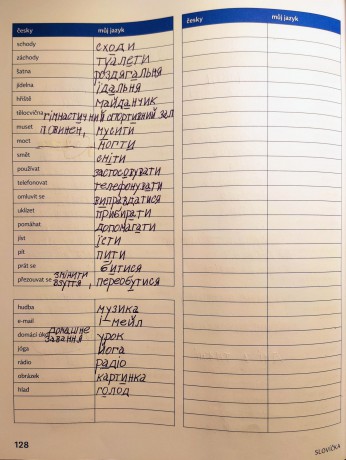 česky můj jazyk česky můj jazyk
schody сходи
záchody туалети
šatna роздягальня
jídelna їдальня
hřiště майданчик
tělocvična гімнастичний спортивний зал
muset повинен, мусити
moct могти
smět сміти
používat застосовувати
telefonovat телефонувати
omluvit se виправдатися
uklízet прибирати
pomáhat допомагати
jíst їсти
pít пити
prát se битися
змінити
přezouvat se взуття, переобутися
hudba музика
e-mail і-мейл
домашнє
domácí úkol завання урок
jóga йога
rádio радіо
obrázek картинка
hlad голод
128
SLOVÍČKA